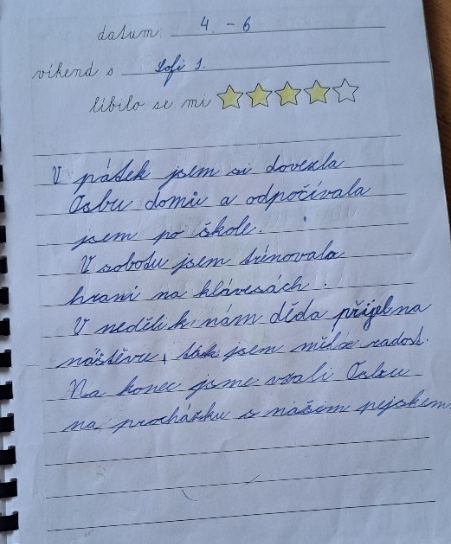 datum: 4. - 6
víkend s Sofi J.
líbilo se mi
V pátek jsem si dovezla
Osbu domu a odpočívala
jsem po škole.
V sobotu jsem trénovala
hraní na klávesách.
V neděli k nám děda přijel na
náštěvu, ták jsem měla radost.
Na konec jsme vzali Osbu
na procházku s našim pejskem